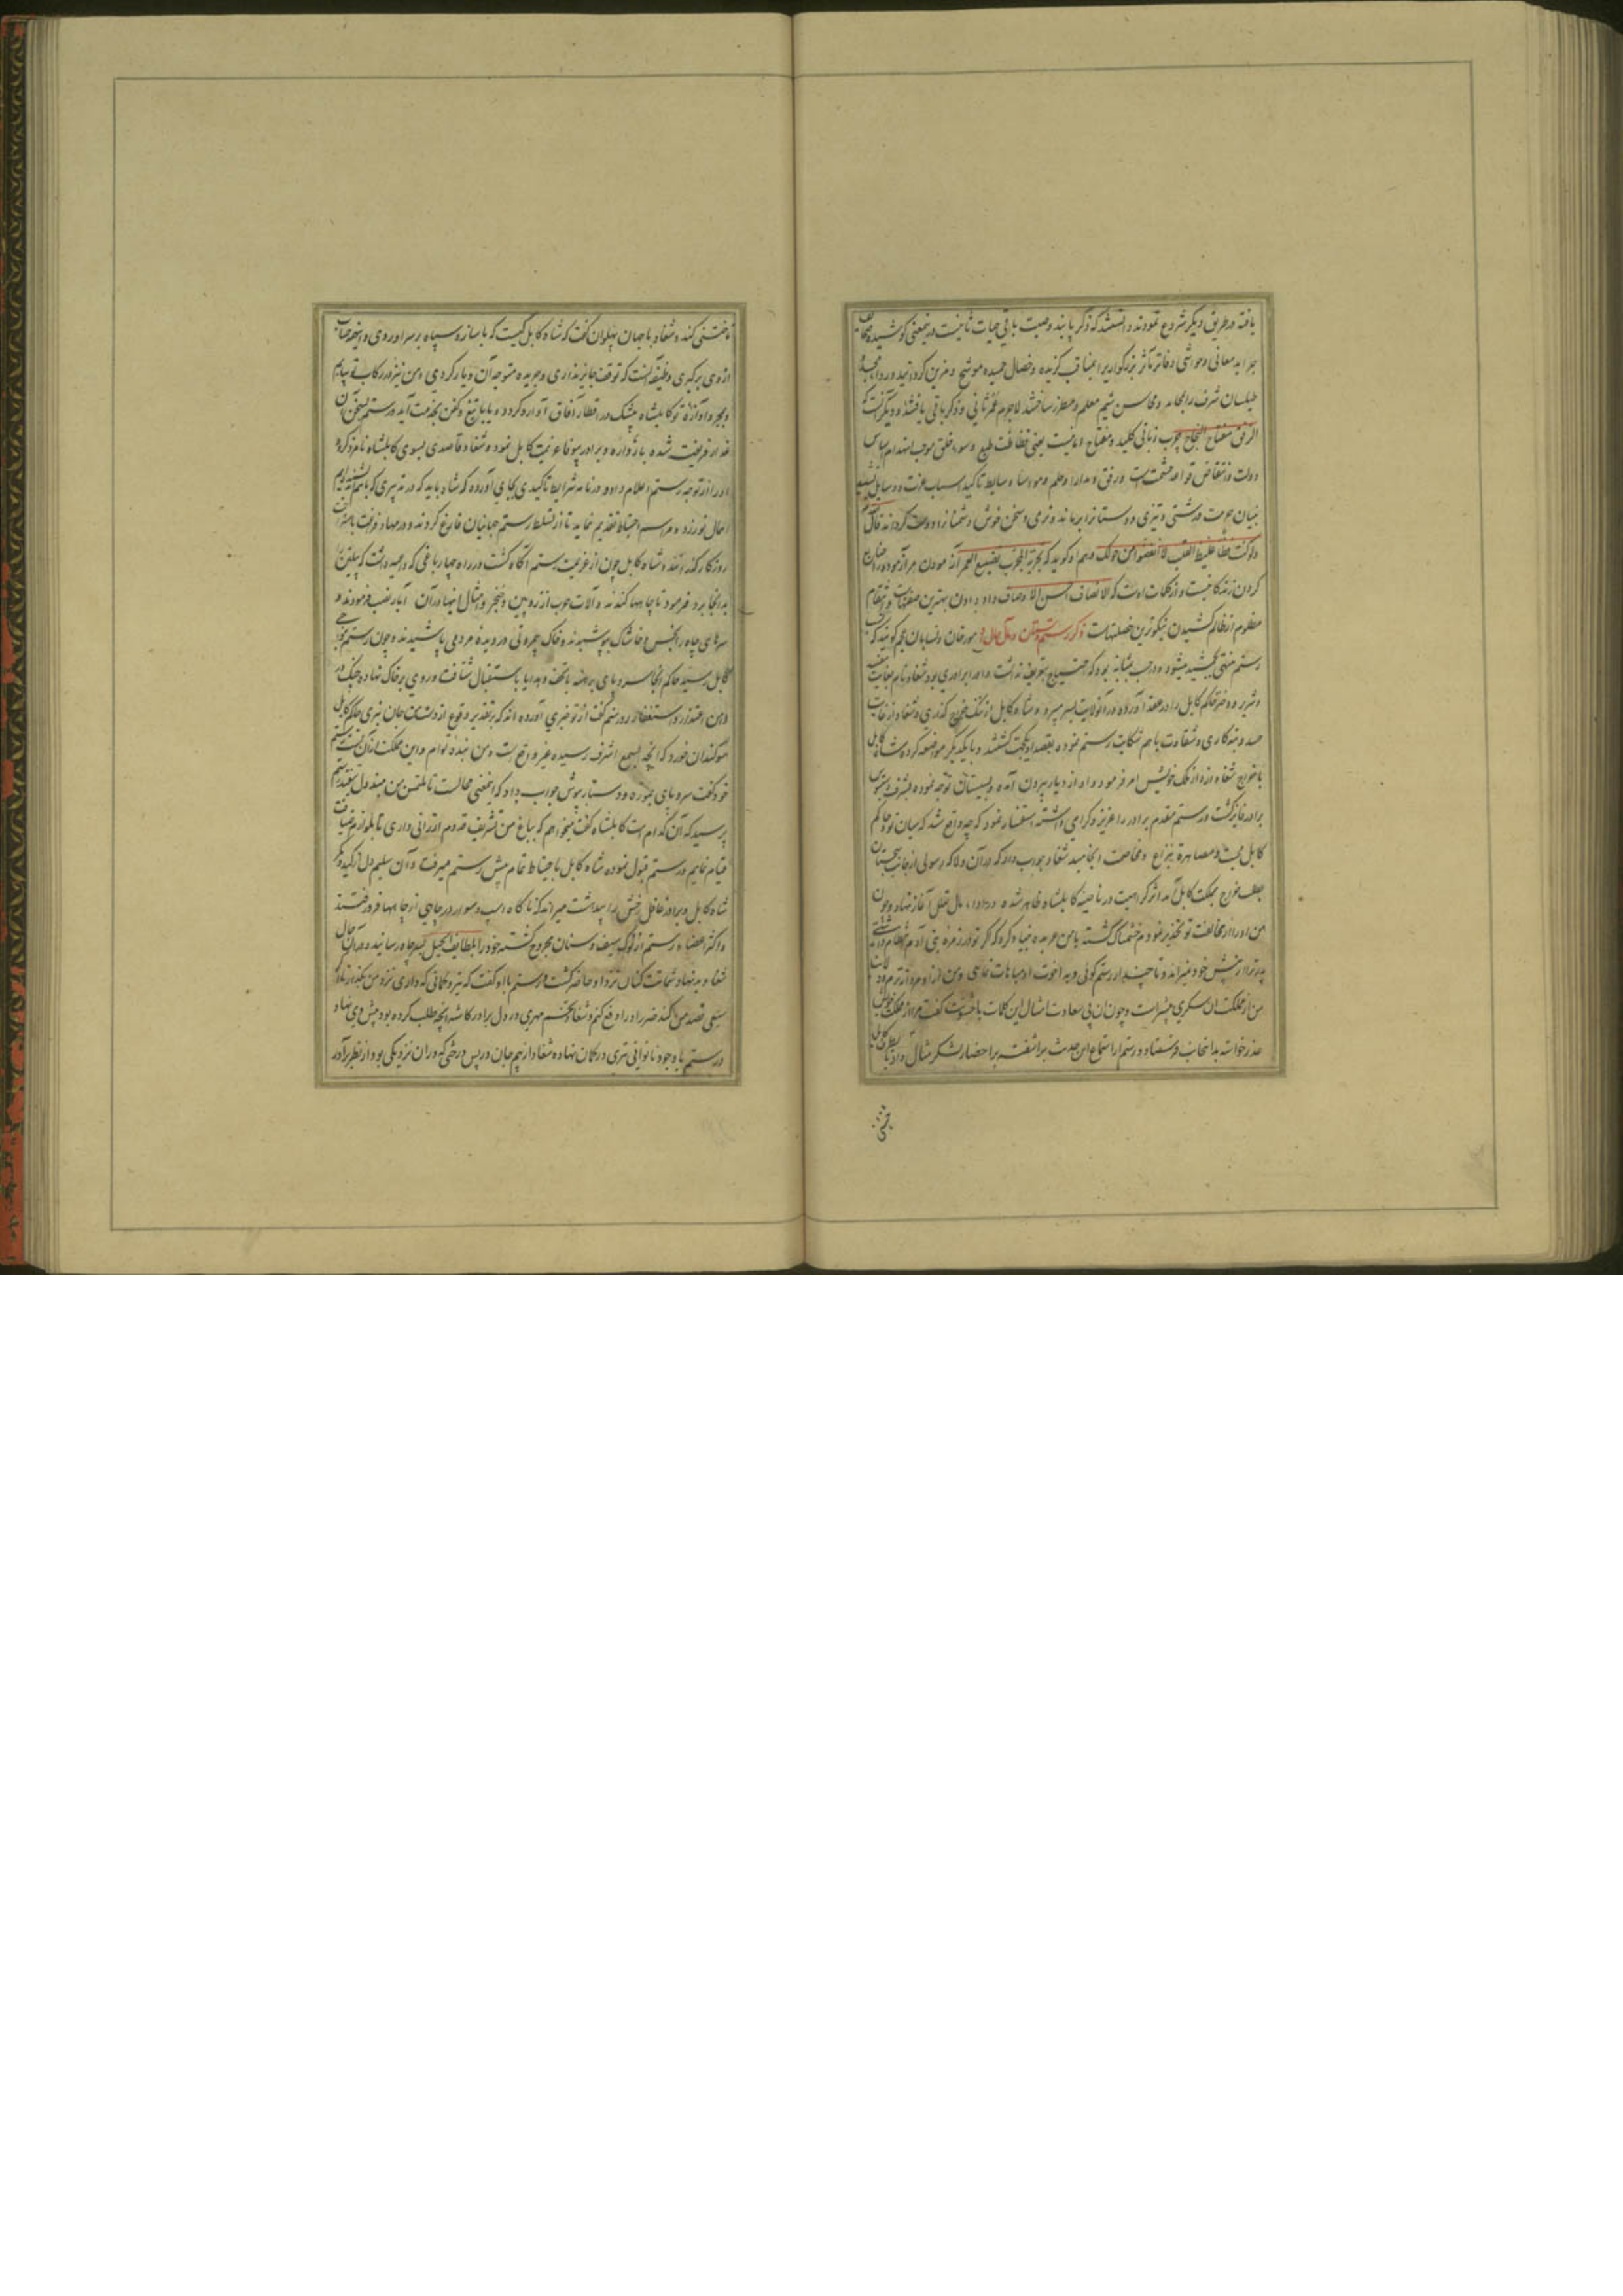 یافته در طریق دیگر شروع نمودند دانستند که ذکر پاینده وصیت باقی حیات ثانیست در ینمعنی کوشیده
جراید معانی و حواشی دفاتر مآثر بزرگواریرا بمناقب گزیده و خصال حمیده موشح و مزین گردانید
طیلسان شرف را بمحامد و محاسن شیم معلم و مطرز ساختند لاجرم عمر ثانی و ذکر باقی یافتند و دیگر گفت که
الرفق مفتاح النجاح چرب زبانی کلید و مفتاح یعنی فظاظت طبع و سوء خلق موجب انهدام اساس
دولت و انتقاض قواعد حشمت است و رفق و مدارا و حلم و مواسا تاکید اسباب عزت و وسایل
بنیان حرمت درشتی و تیزی دوستانرا برماند و نرمی و سخن خوش دشمنانرا دوست گرداند قال الله
ولو کنت فظا غلیظ القلب لانفضوا من حولک و هم او گوید که تجربة المجرب تضییع العمر آزمودن هر آزموده ضایع
کردن زندگانیست و از کلمات اوست که الانصاف احسن الاوصاف داد دادن بهترین صفتهاست و انتقام
مظلوم از ظالم کشیدن نیکوترین خصلتهاست ذکر رستم دستان و مآل حال او مورخان و نسابان عجم گویند که
رستم منتهی بجمشید میشود و درجه بمثابه بود که احتیاج بتعریف نداشت و او را برادری بود شغاد نام بغایت
و شریر و دختر حاکم کابل را در عقد آورده در آنولایت بسر میبرد و شاه کابل از خراج گذاری و شغاد از غایت
حسد و تبه کاری و شقاوت با هم شکایت رستم نموده بقصد او یکجهت گشتند و با یکدیگر مواضعه کرد و شاه کابل
باخراج شغاد از ملک خویش امر فرمود و او از دیار بیرون آمده بسیستان توجه نموده بشرف
برادر فایز گشت و رستم مقدم برادر را عزیز و گرامی داشته استفسار نمود که چه واقع شد که میان تو و حاکم
کابل محبت و مصاهرة بنزاع و مخاصمت انجامید شغاد جواب داد که در آن ولا که رسولی از جانب سجستان
بطلب خراج بمملکت کابل آمد اثر کراهیت در ناصیه کابلشاه ظاهر شده در ادا مال تعلل آغاز نهاد و چون
من او را از مخالفت تو تحذیر نمودم خشمناک گشته با من عربده بنیاد کرد که اگر تو در زمره بنی آدم
پدر ترا از پیش خود نمیراند و تا چند از رستم گوئی و به اخوت او مباهات نمائی و من از او
من از مملکت آن سکزی بیشتر است و چون آن بی سعادت امثال این کلمات با خشونت گفت مرا از مملکت خویش
عذر خواسته بدانجانب فرستاد و رستم از استماع این حدیث برآشفت باحضار لشکر مثال داد تا بطرف کابل
ختنی
تاختنی کند و شغاد با جهان پهلوان گفت که شاه کابل کیست که با ساز و سپاه بر سر او روی
از وی برگیری وظیفه آنست که توقف جایز نداری و جریده متوجه آن دیار گردی و من نیز در رکاب تو بیایم
و بمجرد آوازة تو کابلشاه بیشک در اقطار آفاق آواره گردد و یا با تیغ و کفن بخدمت آید و رستم بسخن آن
غدار فریفته شده با زواره و برادر بیوفا عزیمت کابل نمود و شغاد قاصدی بسوی کابلشاه نامزد کرد
او را از توجه رستم اعلام داد و در نامه شرایط تاکید بجای آورده که شاه باید که در تدبیری که با هم اندیشیده ایم
اهمال نورزد و مراسم احتیاط تقدیم نماید تا از تسلط رستم جهانیان فارغ گردند و در مهاد فراغت
روزگار گذرانند و شاه کابل چون از عزیمت رستم آگاه گشت در راه چهارباغی که داعیه داشت که پیلتن را
بدانجا برد فرمود تا چاهها کندند و آلات حرب از زوبین و خنجر و امثال اینها در آن آبار نصب فرمودند و
سرهای چاه را بخس و خاشاک بپوشیدند و خاک بیمروتی در دیده مردمی پاشیدند و چون رستم
بکابل رسید حاکم آنجا سر و پای برهنه با تحف و هدایا باستقبال شتافت و روی بر خاک نهاده چنگ در
دامن اعتذار و استغفار زد رستم گفت از تو خبری آورده اند که بتقدیر وقوع از دست من جان نبری حاکم کابل
سوگندان خورد که آنچه بسمع اشرف رسیده غیر واقع است و من بنده توام و این مملکت از آن تست رستم
خود گفت سر و پای بموزه و دستار بپوش جواب داد که اینمعنی محالست تا ملتمس من مبذول نیفتد رستم
پرسید که آن کدام است کابلشاه گفت میخواهم که بباغ من تشریف قدوم ارزانی داری تا بلوازم ضیافت
قیام نمایم رستم قبول نموده شاه کابل باحتیاط تمام پیش رستم میرفت و آن سلیم دل از کید و مکر
شاه کابل و برادر غافل رخش را میراند که ناگاه اسب و سوار در چاهی از چاهها فرو رفتند
و اکثر اعضاء رستم از نوک سیف و سنان مجروح گشته خود را بلطایف الحیل بسر چاه رسانید و در آن حال
شغاد بد نهاد شماتت کنان نزد او حاضر گشت رستم با او گفت که تیر و کمانی که داری نزد من بگذار تا اگر
سبعی قصد من کند ضرر او را دفع کنم و شغاد مهری در دل برادر کاشته آنچه طلب کرده بود پیش وی نهاد
و رستم با وجود ناتوانی تیری در کمان نهاده شغاد از بیم جان در پس درختی که در آن نزدیکی بود از نظر برادر